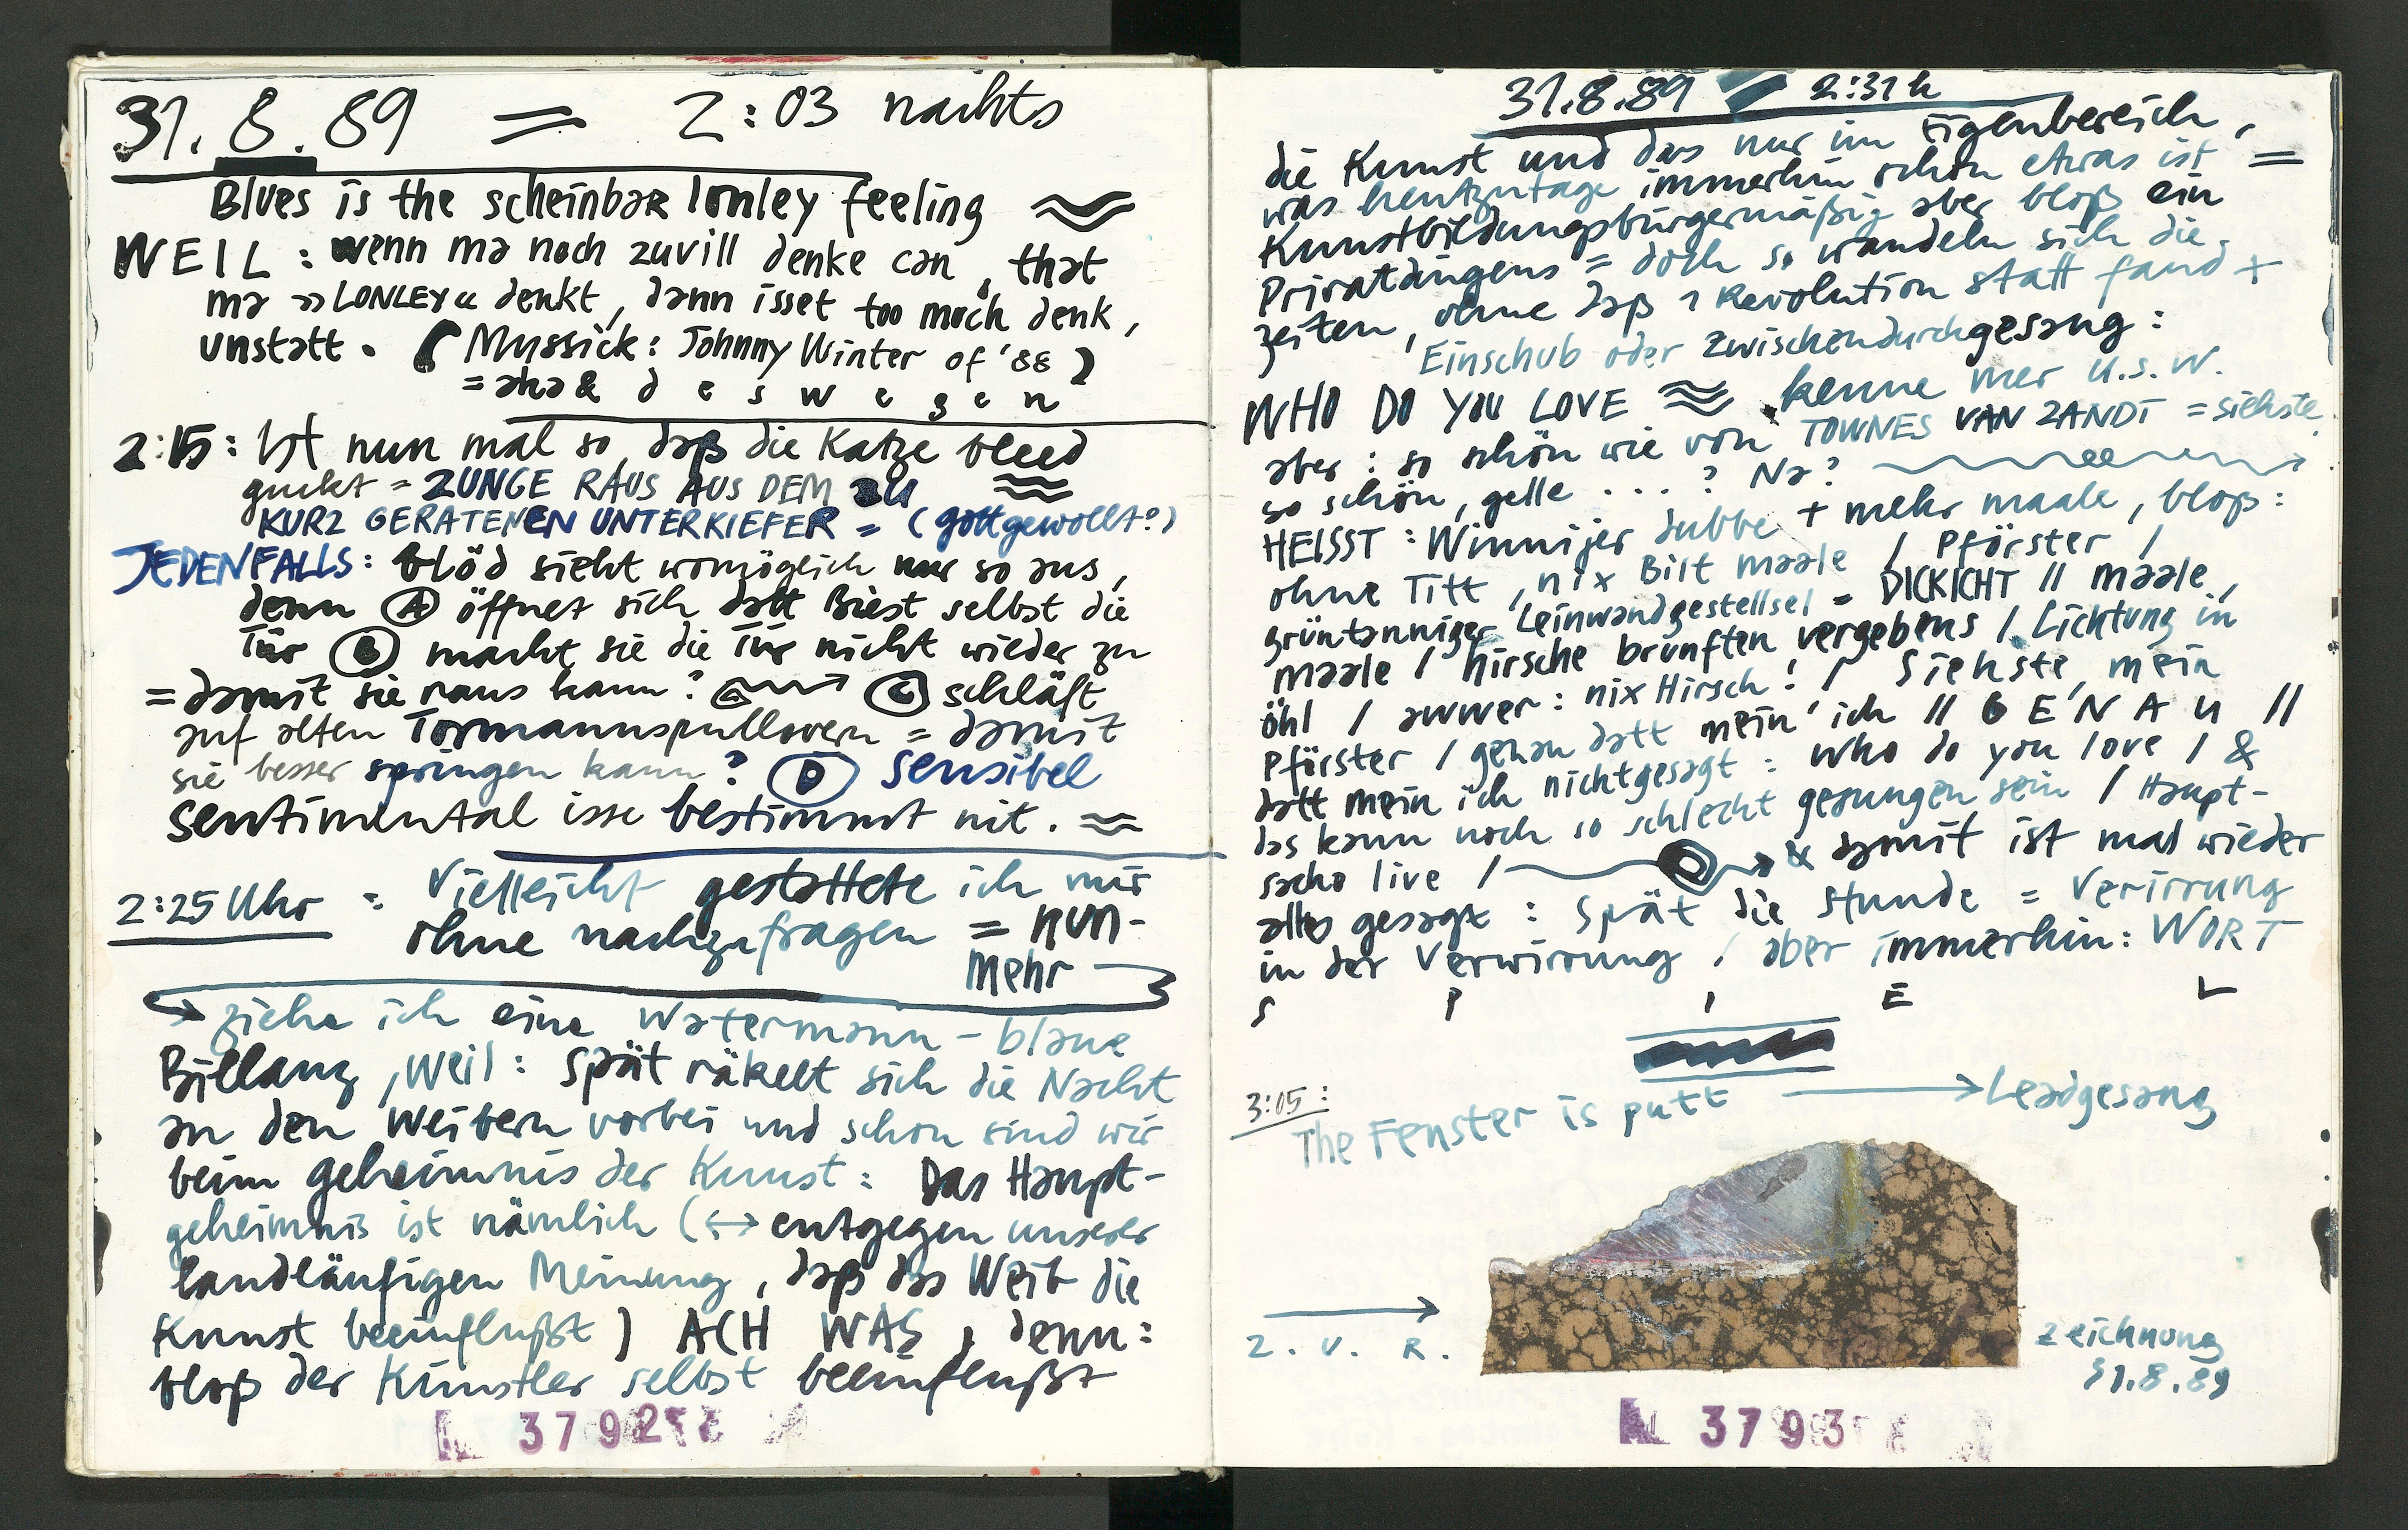 31.8.89 = 2:03 nachts
Blues is the scheinbar lonley feeling
WEIL: wenn ma noch zuvill denke can, that
ma »LONLEY« denkt, dann isset too moch denk,
unstatt. (Mussick: Johnny Winter of '88)
= aha & d e s w e g e n
2:15: Ist nun mal so, daß die Katze bleed
guckt = ZUNGE RAUS AUS DEM zu
KURZ GERATENEN UNTERKIEFER = (gottgewollt?)
JEDENFALLS: blöd sieht womöglich nur so aus,
denn (A) öffnet sich datt Biest selbst die
Tür (B) macht sie die Tür nicht wieder zu
= damit sie raus kann? (C) schläft
auf alten Tormannspullovern = damit
sie besser springen kann? (D) sensibel
sentimental isse bestimmt nit.
2:25 Uhr = Vielleicht gestattete ich mir
ohne nachzufragen = nun-
mehr
ziehe ich eine Watermann-blaue
Billanz, weil: Spät räkelt sich die Nacht
an den Weibern vorbei und schon sind wir
beim Geheimnis der Kunst: Das Haupt-
geheimnis ist nämlich (↔ entgegen unserer
landläufigen Meinung, daß das Weib die
Kunst beeinflußt) ACH WAS, denn:
bloß der Künstler selbst beeinflußt
37925
31.8.89 2:31 h
die Kunst und das nur im Eigenbereich,
was heutzutage immerhin schon etwas ist =
Kunstbildungsbürgermäßig aber bloß ein
Privatdingens = doch so wandeln sich die
Zeiten, ohne daß 1 Revolution statt fand +
Einschub oder Zwischendurchgesang:
WHO DO YOU LOVE kenne mer u.s.w.
aber: so schön wie von TOWNES VAN ZANDT = siehste
so schön, gelle ...? Na?
HEISST: Winnijer dubbe + mehr maale, bloß:
ohne Titt, nix Bilt maale / Pförster /
grüntanniger Leinwandgestellsel = DICKICHT // maale,
maale / Hirsche brunften vergebens / Lichtung in
öhl / awwer: nix Hirsch! / Siehste, mein
Pförster / genau datt mein' ich // GENAU //
datt mein ich nichtgesagt: who do you love / &
das kann noch so schlecht gesungen sein / Haupt-
sache live / & damit ist mal wieder
alles gesagt: Spät die Stunde = Verirrung
in der Verwirrung / aber immerhin: WORT
S P I E L
3:05:
The Fenster is putt → Leadgesang
Z. V. R.
Zeichnung
31.8.89
3793